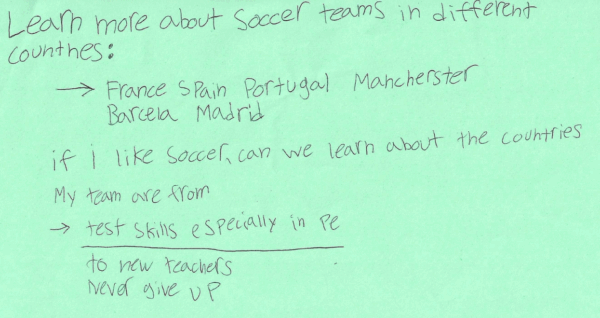 Learn more about Soccer teams in different
counthes:
→ France Spain Portugal Mancherster
Barcela Madrid
if i like Soccer, can we learn about the countries
My team are from
→ test skills especially in Pe
to new teachers
Never give up